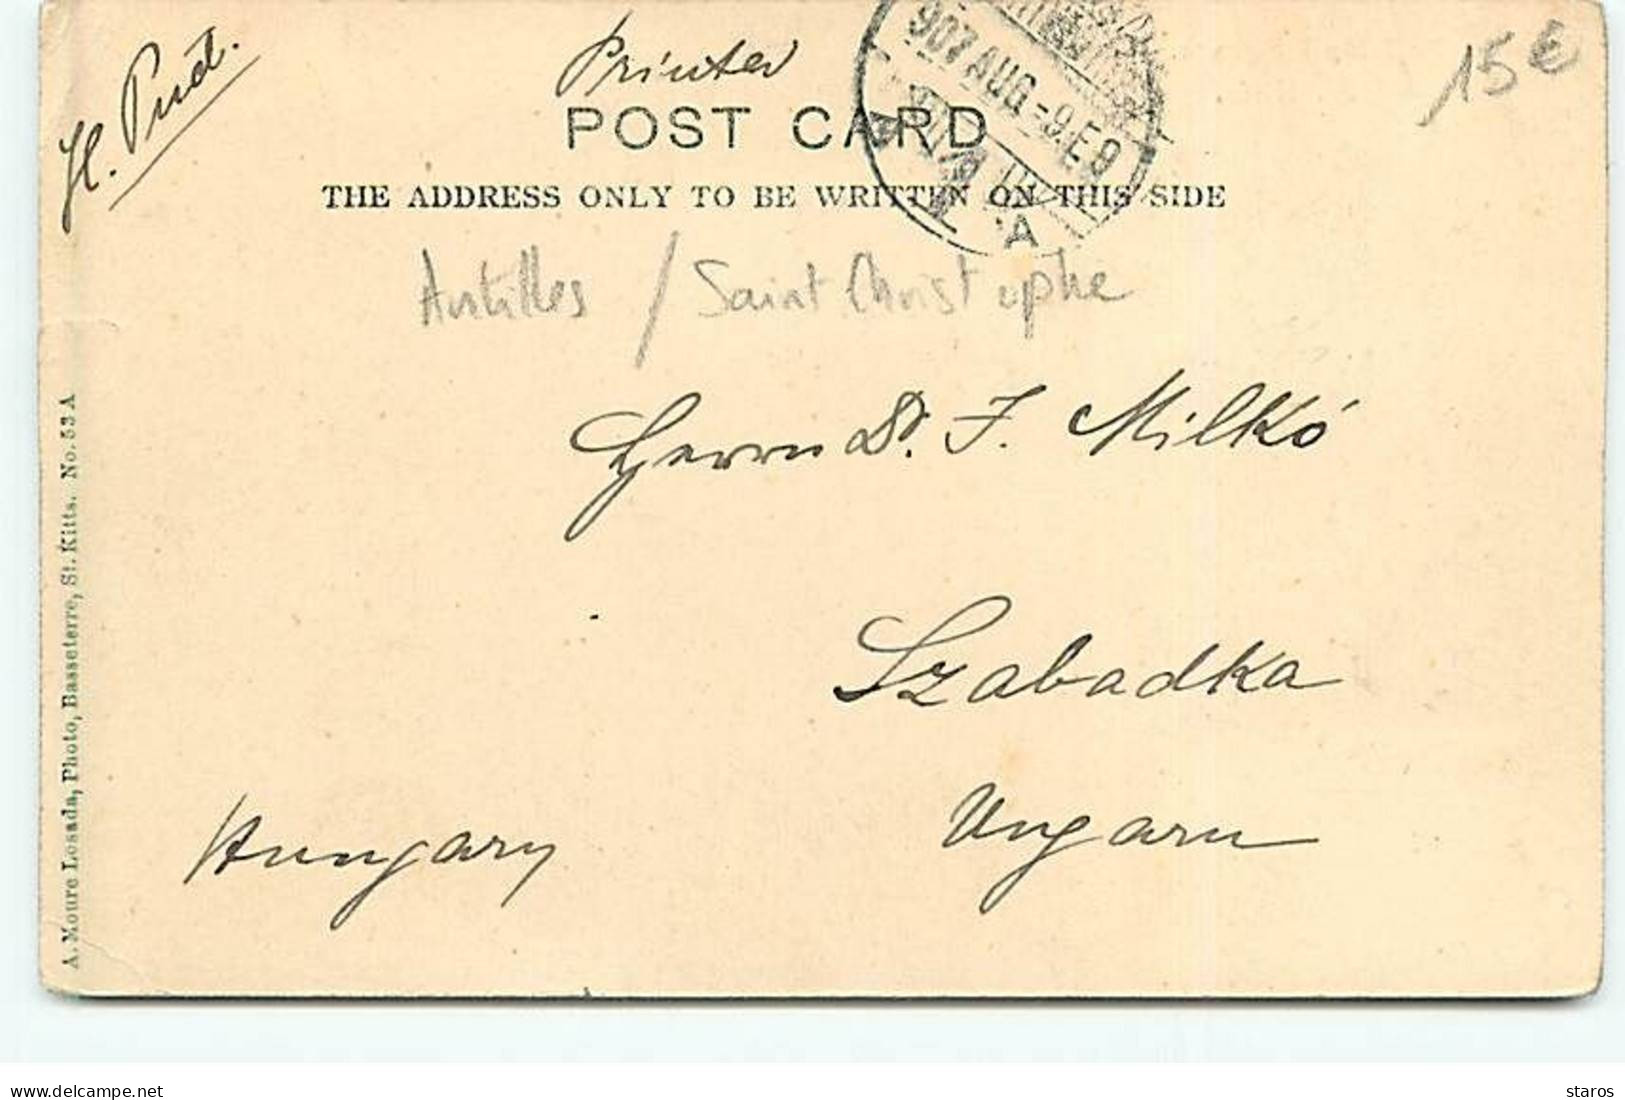 H. Prud.
Printed
15€
POST CARD
907 AUG -9.E9
A
THE ADDRESS ONLY TO BE WRITTEN ON THIS SIDE
Antilles / Saint Christophe
Herrn Dr. J. Milkó
Szabadka
Ungarn
Hungary
A. Moure Losada, Photo, Basseterre, St. Kitts. No. 53 A
www.delcampe.net
staros